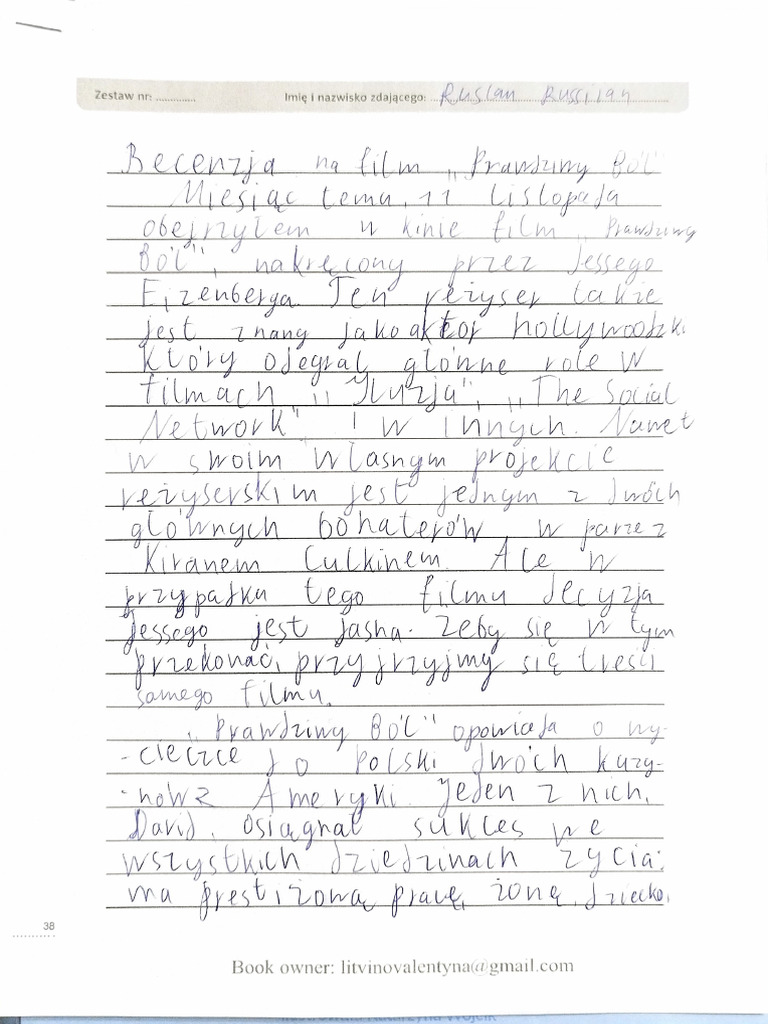 Zestaw nr: ............
Imię i nazwisko zdającego: Ruslan Russiian
Recenzja na film „Prawdziwy Ból"
Miesiąc temu, 11 listopada
obejrzyłem w kinie film „Prawdziwy
Ból", nakręcony przez Jessego
Ejzenberga. Ten reżyser takie
jest znany jako aktor hollywoodzki
który odegrał główne role w
filmach „Iluzja", „The Social
Network" i w innych. Nawet
w swoim własnym projekcie
reżyserskim jest jednym z dwóch
głównych bohaterów w parze z
Kiranem Culkinem. Ale w
przypadku tego filmu decyzja
Jessego jest jasna. Żeby się w tym
przekonać, przyjrzyjmy się treści
samego filmu.
„Prawdziwy Ból" opowiada o wy-
-cieczce do Polski dwóch kuzy-
-nów z Ameryki. Jeden z nich,
David, osiągnął sukces we
wszystkich dziedzinach życia:
ma prestiżową pracę, żonę, dziecko,
38
Book owner: litvinovalentyna@gmail.com